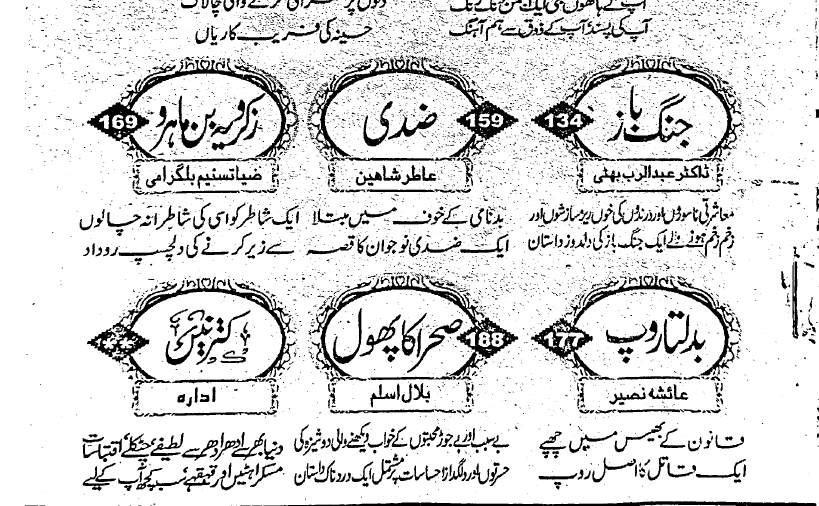 آپ کی پسند آپ کے ذوق سے ہم آہنگ
حسینہ کی فریب کاریاں
جنگ باز
134
ڈاکٹر عبدالرب بھٹی
معاشرتی ناسوروں اور درندوں کی خوں ریز سازشوں اور
زخم زخم ہونے والے ایک جنگ باز کی دلدوز داستان
ضدی
159
عاطر شاہین
بدنامی کے خوف میں مبتلا
ایک ضدی نوجوان کا قصہ
169
ضیا تسنیم بلگرامی
ایک شاطر کو اسی کی شاطرانہ چالوں
سے زیر کرنے کی دلچسپ روداد
بدلتا روپ
177
عائشہ نصیر
قانون کے بھیس میں چھپے
ایک قاتل کا اصل روپ
صحرا کا پھول
188
بلال اسلم
بے سبب اور بے جوڑ محبتوں کے خواب دیکھنے والی دوشیزہ کی
حسرتوں اور دلگداز احساسات پر مشتمل ایک دردناک داستان
کترنیں
ادارہ
دنیا بھر سے ادھر ادھر سے لطیفے، چٹکلے، اقتباسات
مسکراہٹیں اور قہقہے سب کچھ آپ کے لیے